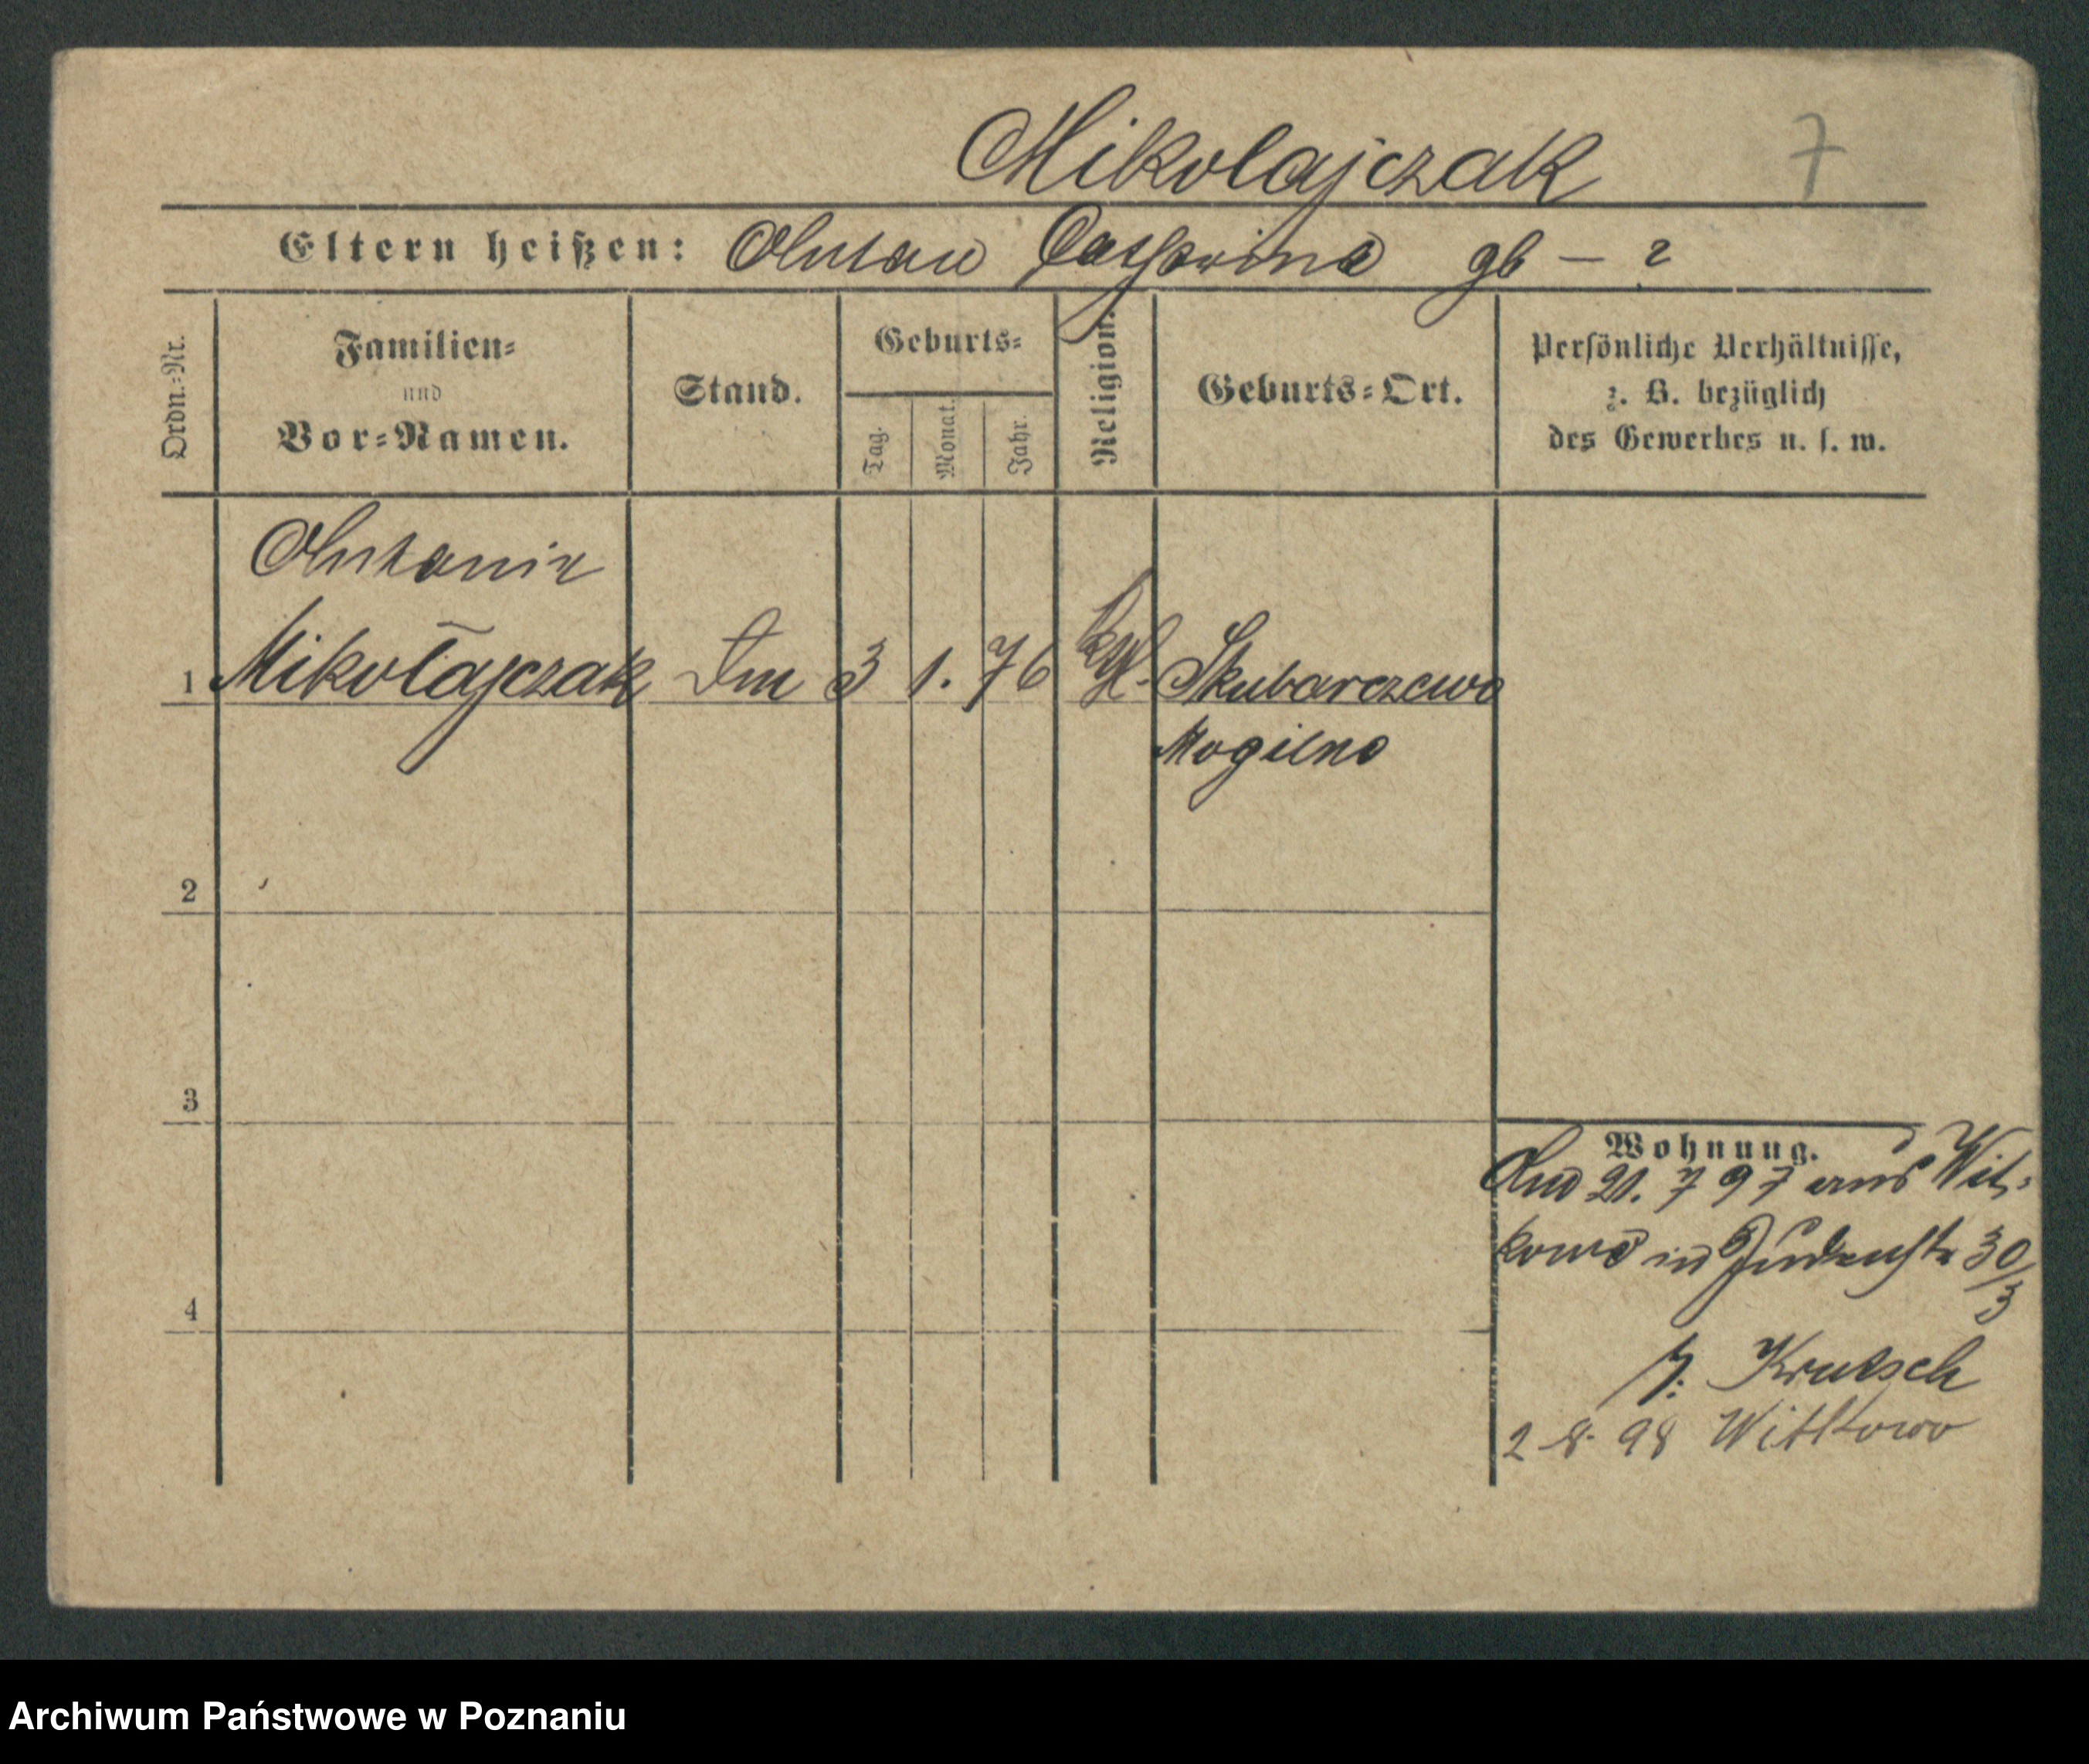 Mikolajczak 7
Eltern heißen: Anton Catharina gb – ?
Ordn.-Nr.
Familien-
und
Vor-Namen.
Stand.
Geburts-
Tag.
Monat.
Jahr.
Religion.
Geburts-Ort.
Persönliche Verhältnisse,
z. B. bezüglich
des Gewerbes u. s. w.
Antonie
1 Mikołajczak 3 1. 76 kth. Skubarczewo
Mogilno
2
3
Wohnung.
21. 7 97 aus Wit-
kowo in Judenstr 30/3
4
Krutsch
2 8. 98 Wittkowo
Archiwum Państwowe w Poznaniu